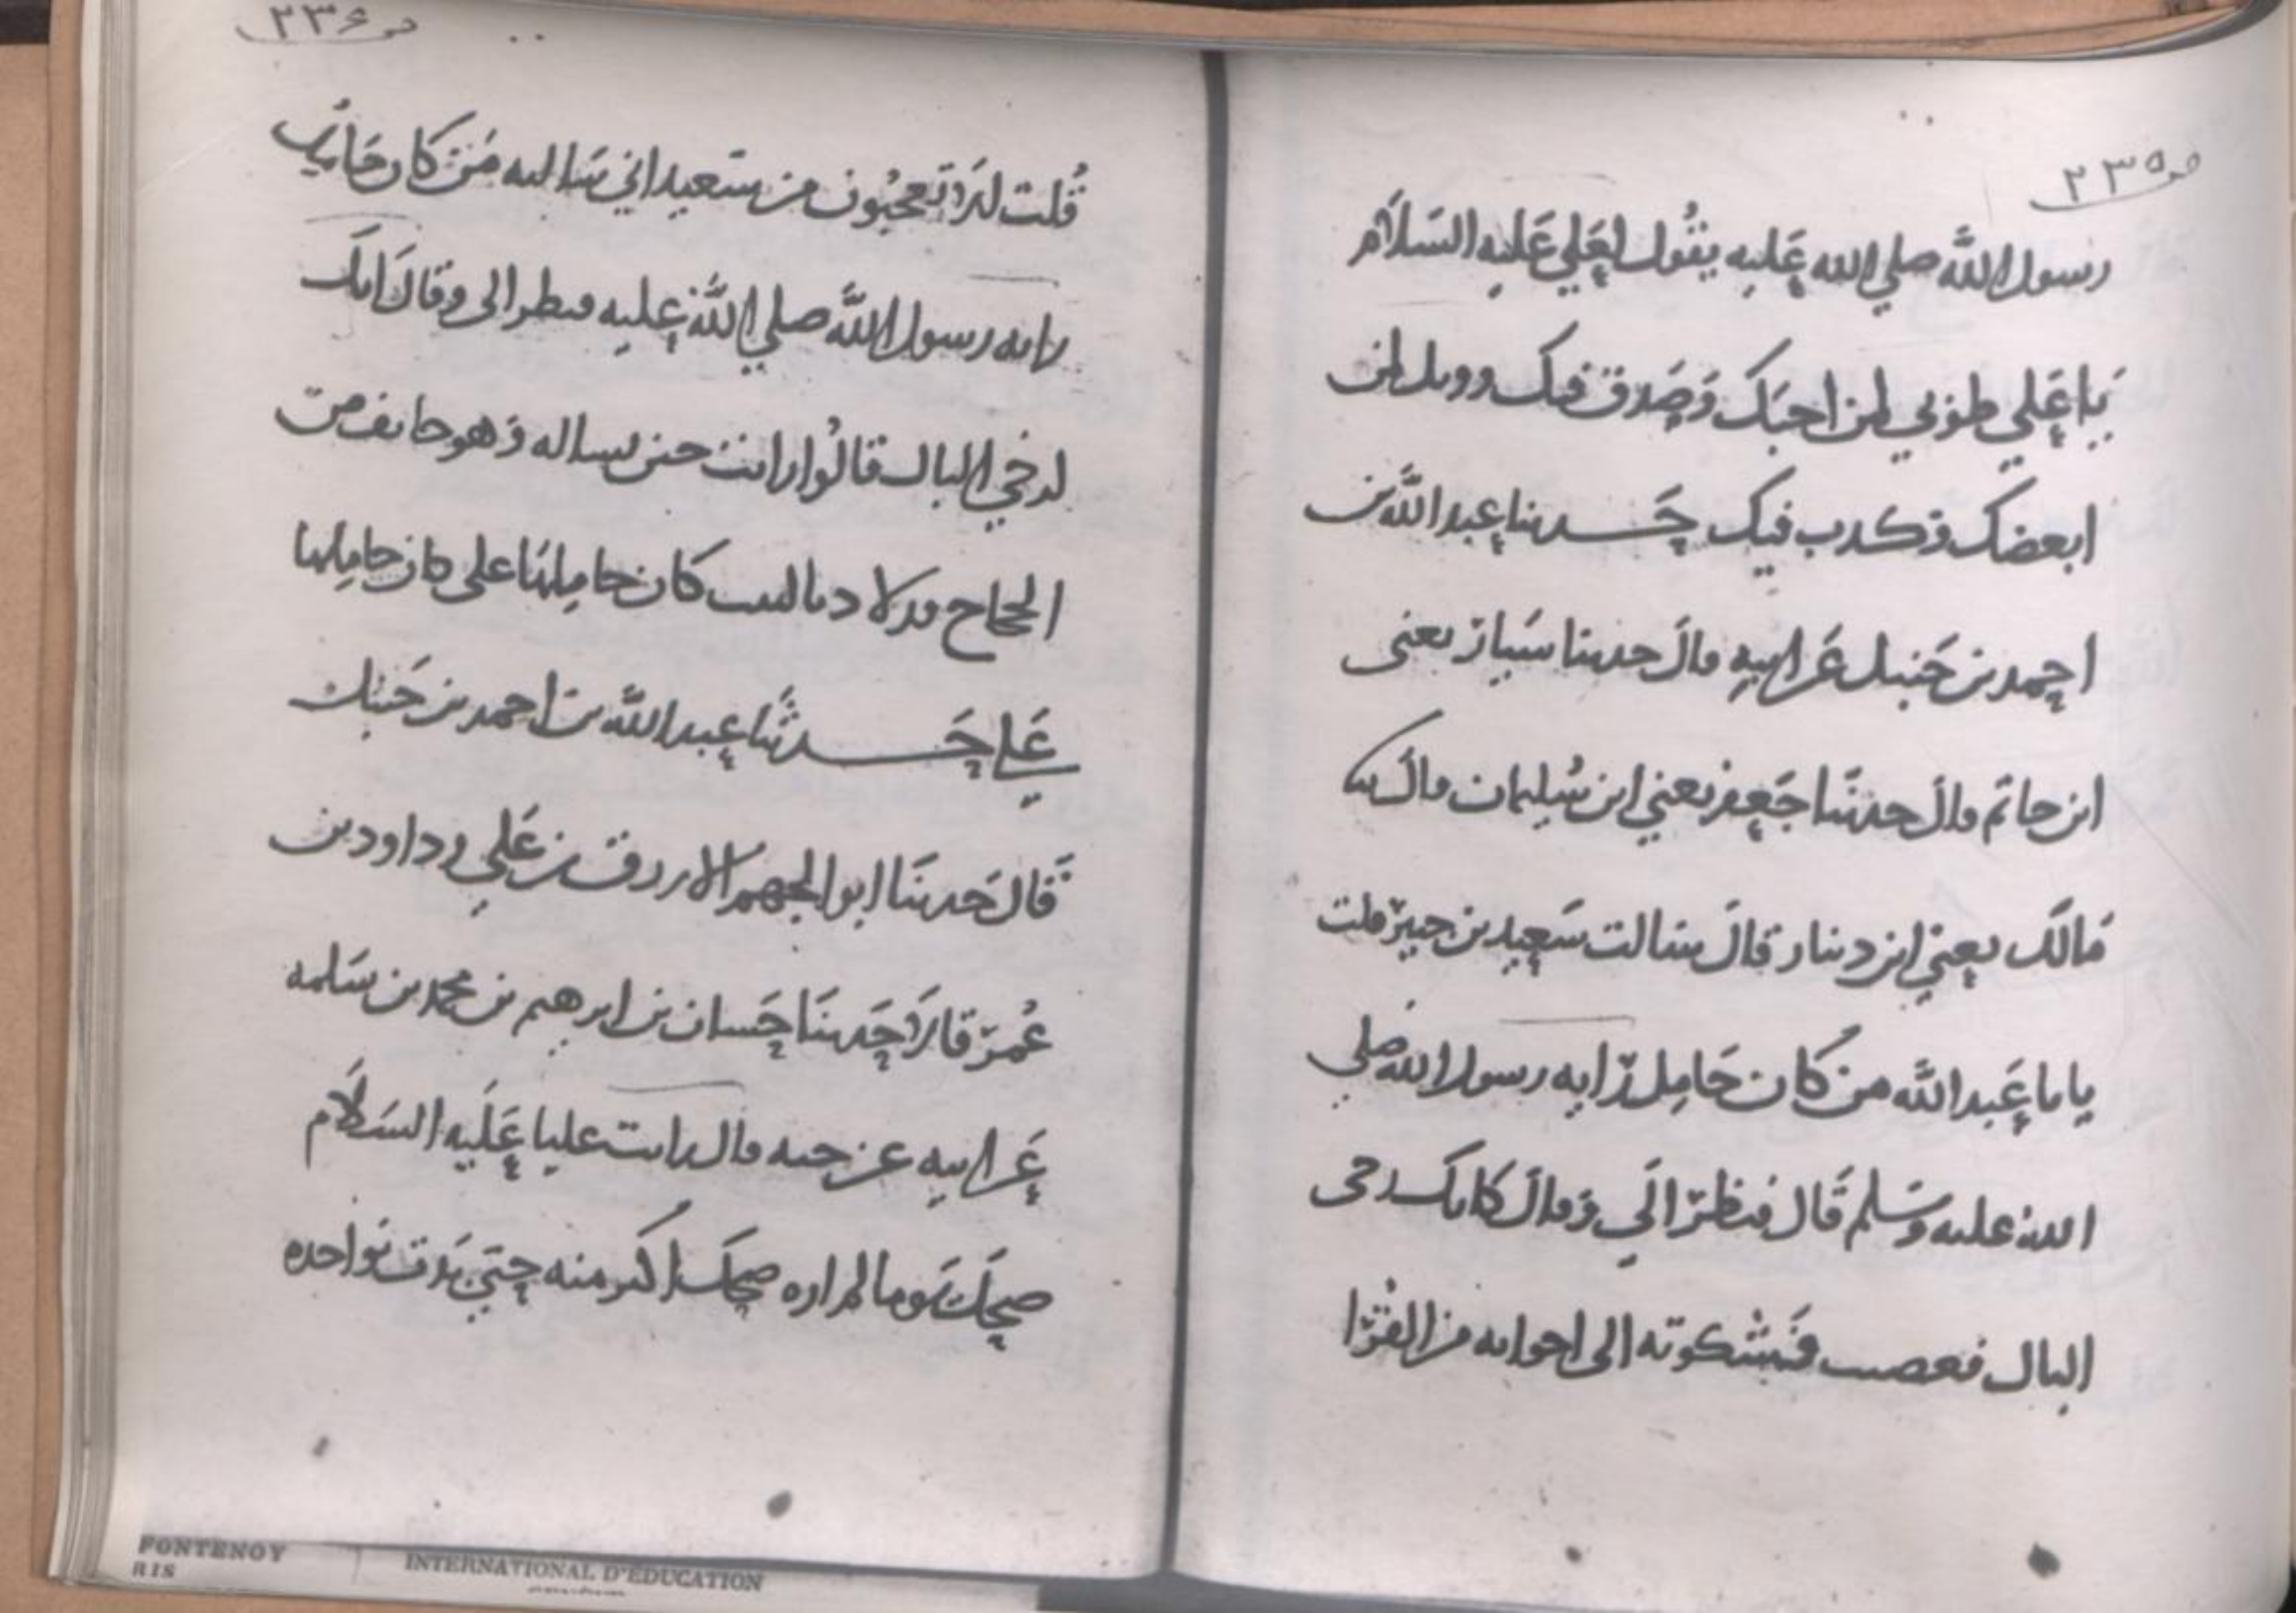 ص ٢٣٥
رسول الله صلي الله عليه يقول لعلي عليه السلام
يا علي طوبي لمن احبك وصدق فيك وويل لمن
ابغضك وكذب فيك حدثنا عبد الله بن
احمد بن حنبل عن ابيه قال حدثنا سيار يعني
ابن حاتم قال حدثنا جعفر يعني ابن سليمان قال
مالك يعني ابن دينار قال سالت سعيد بن جبير قلت
يا با عبد الله من كان حامل راية رسول الله صلي
الله عليه وسلم قال فنظر الي وقال كانك رخي
البال فغضبت فشكوته الى اخوانه من القرا
ص ٢٣٦
قلت الا تعجبون من سعيد اني سالته من كان حامل
راية رسول الله صلي الله عليه فنظر الي وقال انك
لرخي البال قالوا رايت حين تساله وهو خايف من
الحجاج قد لاذ بالبيت كان حاملها علي كان حاملها
علي حدثنا عبد الله بن احمد بن حنبل
قال حدثنا ابو الجهم الازرق بن علي وداود بن
عمر قالا حدثنا حسان بن ابرهيم بن محمد بن سلمه
عن ابيه عن حبه قال رايت عليا عليه السلام
ضحك يوما لم اره ضحك اكثر منه حتي بدت نواجده
FONTENOY
RIS
INTERNATIONAL D'EDUCATION